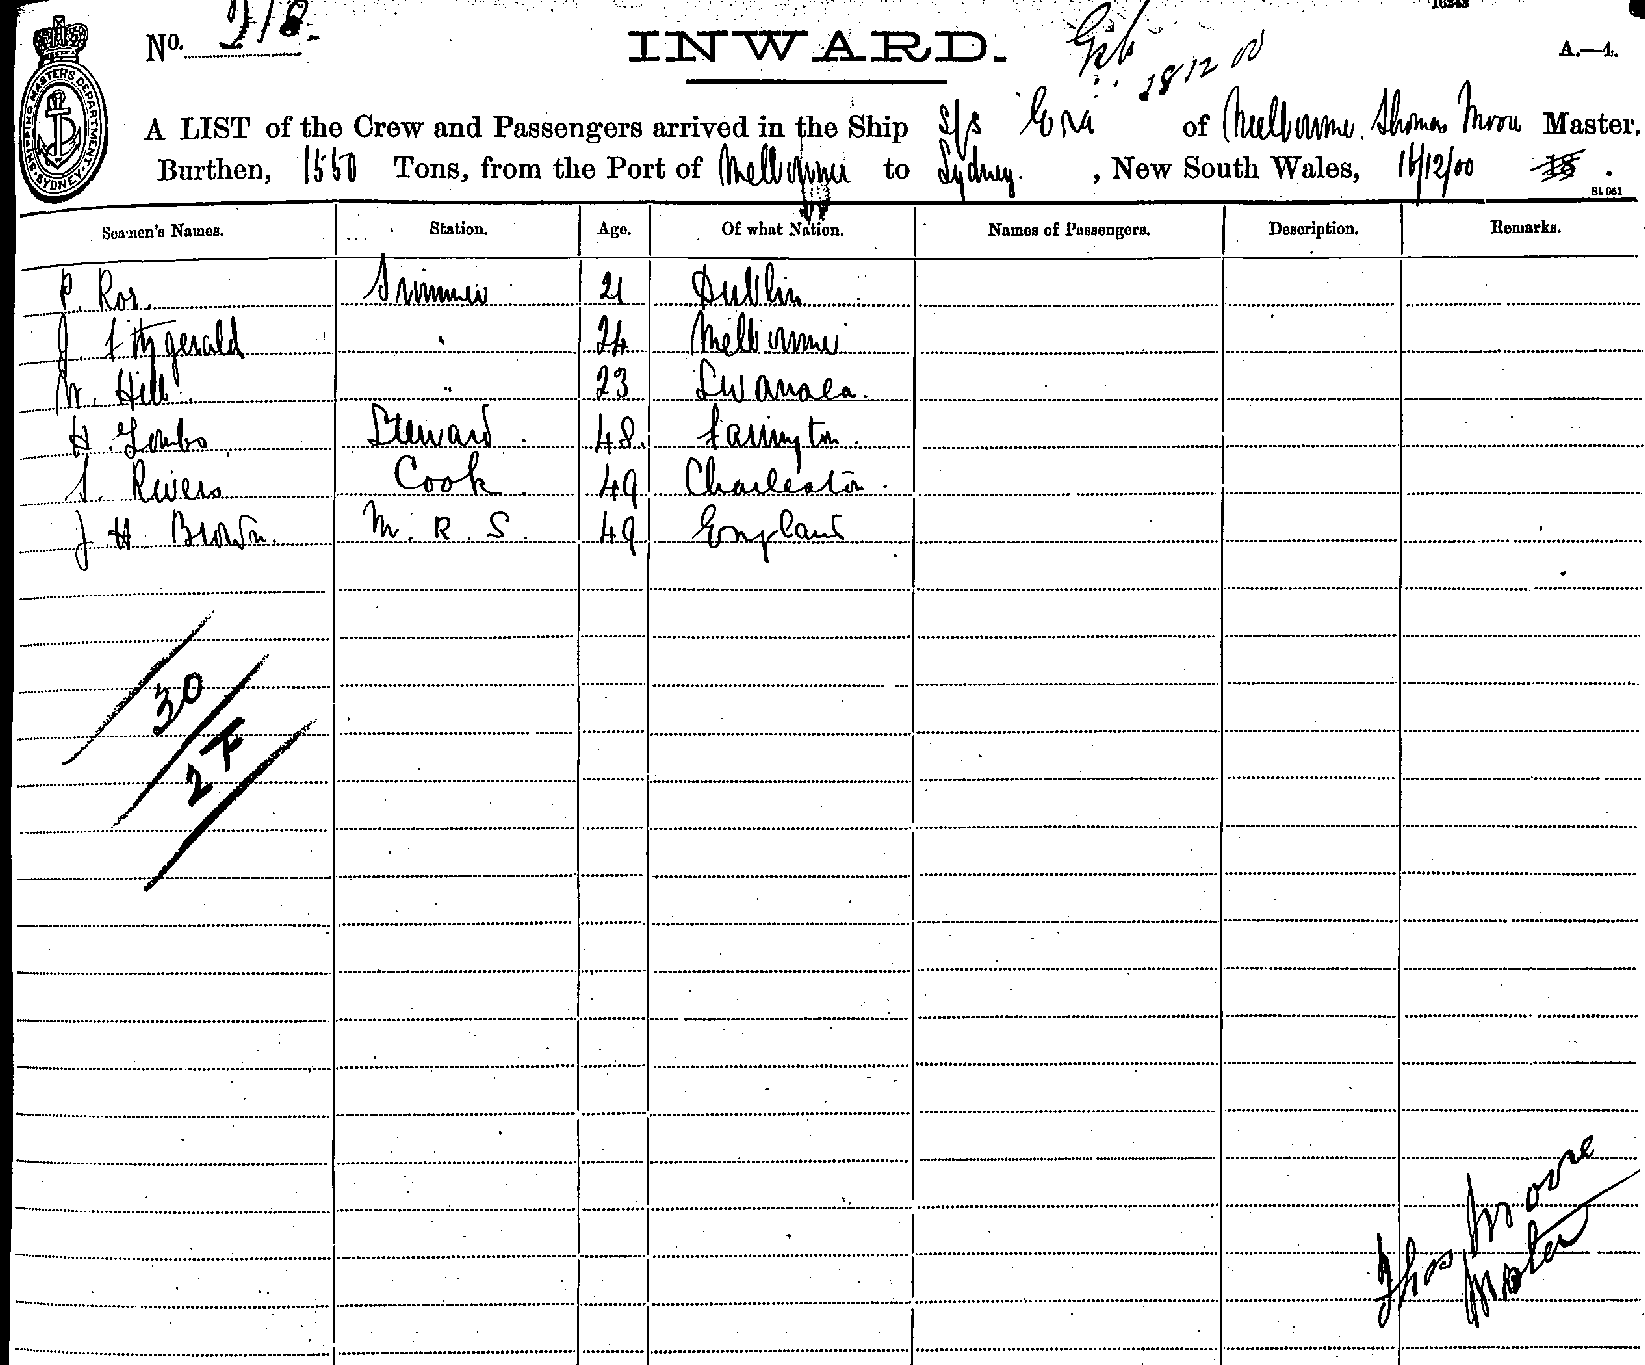 No. 218.
INWARD.
18 12 00
A.—4.
SHIPPING MASTER'S DEPARTMENT SYDNEY
A LIST of the Crew and Passengers arrived in the Ship S/S Era of Melbourne. Thomas Moore Master,
Burthen, 1550 Tons, from the Port of Melbourne to Sydney. , New South Wales, 16/12/00
Seamen's Names. Station. Age. Of what Nation. Names of Passengers. Description. Remarks.
P. Trimmer 21 Dublin
J Fitzgerald " 24 Melbourne
W. Hill " 23 Swansea.
H. Steward. 48. Farrington.
S. Rivers Cook 49 Charleston.
J H Brown. M. R. S. 49 England
30
2 F
Thos Moore
Master